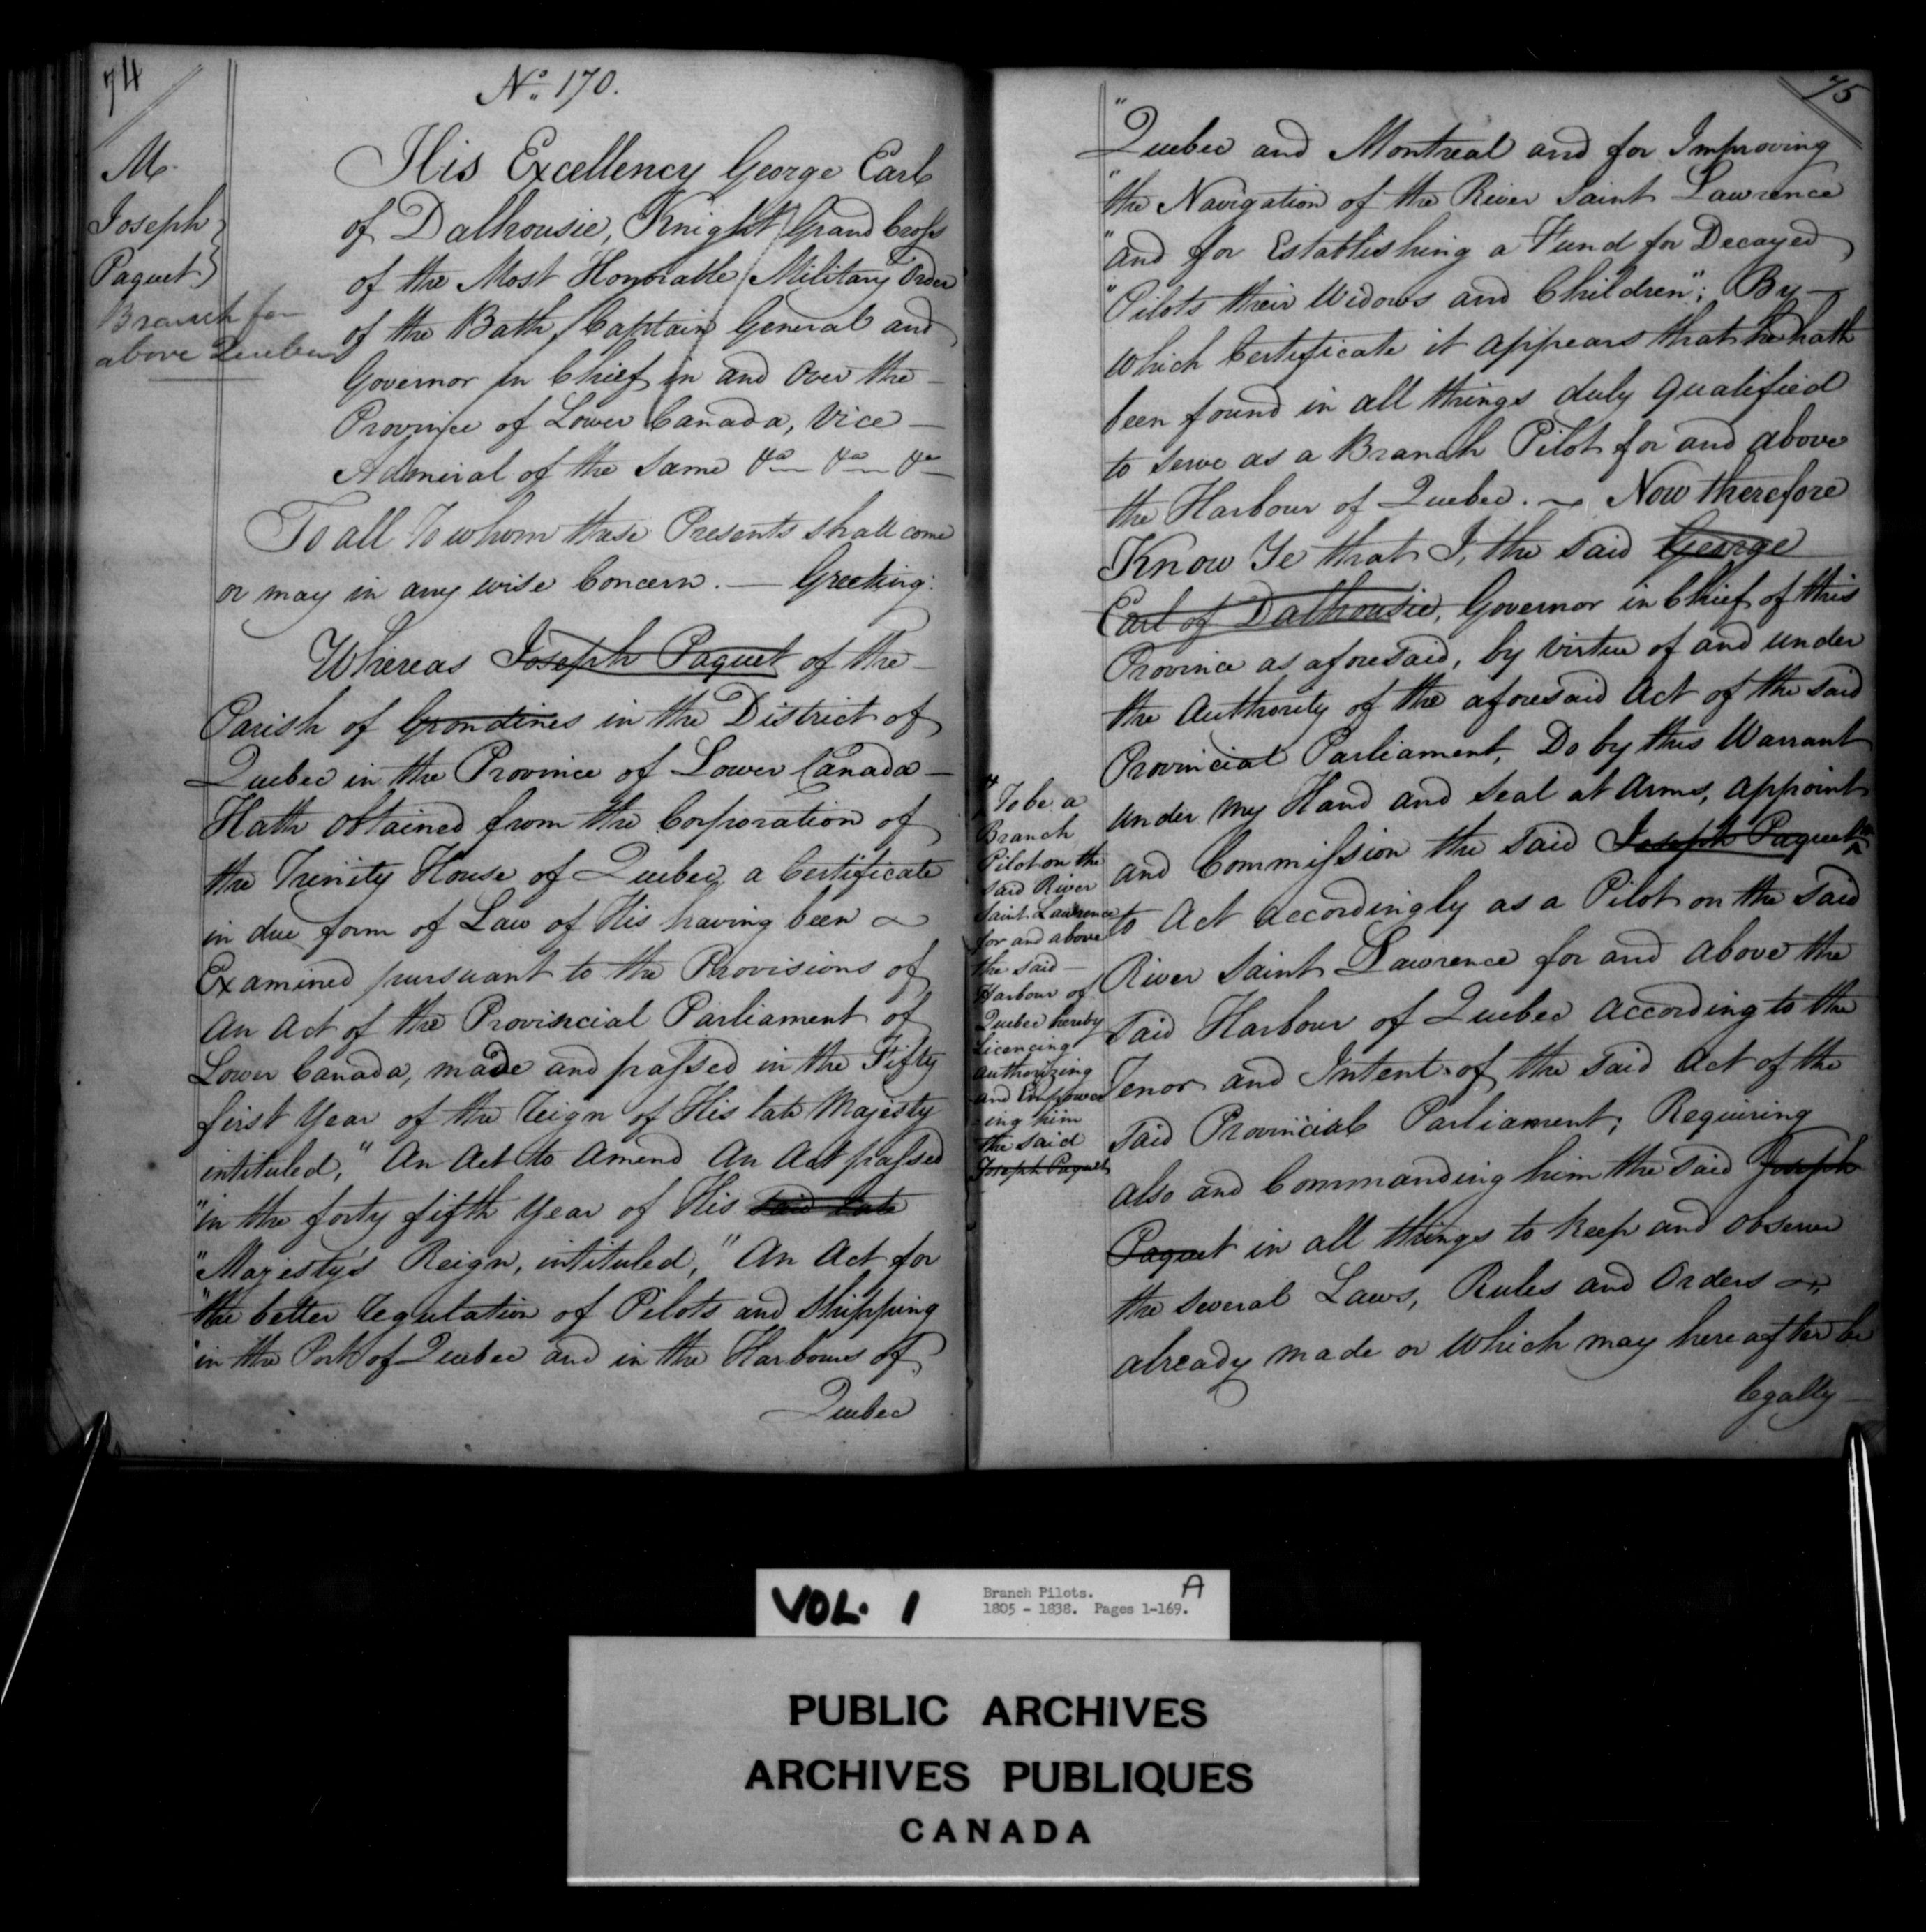 74
No. 170.
M.
Joseph
Paquet
Branch for
above Quebec
His Excellency George Earl
of Dalhousie, Knight Grand Cross
of the Most Honorable Military Order
of the Bath, Captain General and
Governor in Chief in and Over the
Province of Lower Canada, Vice
Admiral of the Same &a &a &a
To all to whom these Presents shall come
or may in any wise Concern. — Greeting:
Whereas Joseph Paquet of the
Parish of Grondines in the District of
Quebec in the Province of Lower Canada
Hath obtained from the Corporation of
the Trinity House of Quebec, a Certificate
in due form of Law of His having been
Examined pursuant to the Provisions of
an Act of the Provincial Parliament of
Lower Canada, made and passed in the Fifty
first Year of the Reign of His late Majesty
intituled, "An Act to Amend An Act passed
"in the forty fifth Year of His said late
"Majesty's Reign, intituled, "An Act for
"the better regulation of Pilots and Shipping
"in the Port of Quebec and in the Harbours of
Quebec
75
"Quebec and Montreal and for Improving
"the Navigation of the River Saint Lawrence
"and for Establishing a Fund for Decayed
"Pilots their Widows and Children"; By
which Certificate it appears that he hath
been found in all things duly qualified
to serve as a Branch Pilot for and above
the Harbour of Quebec. — Now therefore
Know Ye that I, the said George
Earl of Dalhousie, Governor in Chief of this
Province as aforesaid, by virtue of and under
the Authority of the aforesaid Act of the said
Provincial Parliament, Do by this Warrant
under my Hand and Seal at Arms, appoint
and Commission the said Joseph Paquet
to Act accordingly as a Pilot on the said
River Saint Lawrence for and above the
said Harbour of Quebec according to the
Tenor and Intent of the said Act of the
said Provincial Parliament; Requiring
also and Commanding him the said Joseph
Paquet in all things to keep and observe
the several Laws, Rules and Orders
already made or which may hereafter be
legally
To be a
Branch
Pilot on the
said River
Saint Lawrence
for and above
the said
Harbour of
Quebec hereby
Licencing
authorizing
and Empower
ing him
the said
Joseph Paquet
VOL. 1
Branch Pilots.
1805 - 1838. Pages 1-169.
A
PUBLIC ARCHIVES
ARCHIVES PUBLIQUES
CANADA